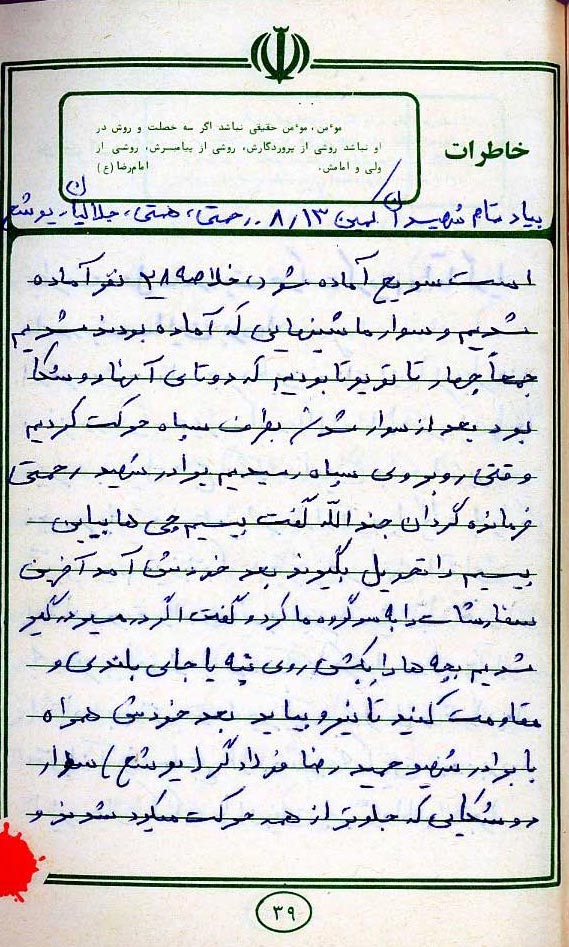 مؤمن، مؤمن حقیقی نباشد اگر سه خصلت و روش در
او نباشد روشی از پروردگارش، روشی از پیامبرش، روشی از
ولی و امامش. امام رضا (ع)
خاطرات
بیاد تمام شهیدان ۸/۱۳ رحمتی، همتی، جلالیان، یوشع
است سریع آماده شود، خلاصه ۲۸ نفر آماده
شدیم و سوار ماشینهایی که آماده بودند شدیم
جمعاً چهار تا تویوتا بودیم که دو تای آنها دوشکا
بود بعد از سوار شدن بطرف سپاه حرکت کردیم
وقتی روبروی سپاه رسیدیم برادر شهید رحمتی
فرمانده گردان جندالله گفت بیسیم چی ها بیاین
بیسیم را تحویل بگیرند بعد خودش آمد آخرین
سفارشات را به سرگروه ما کرد و گفت اگر در مسیر درگیر
شدیم بچه ها را بکش روی تپه یا جای بلندی و
مقاومت کنید تا نیرو بیاید بعد خودش همراه
با برادر شهید حمید رضا دادگر (یوشع) سوار
دوشکایی که جلوتر از همه حرکت میکرد شدند و
۳۹